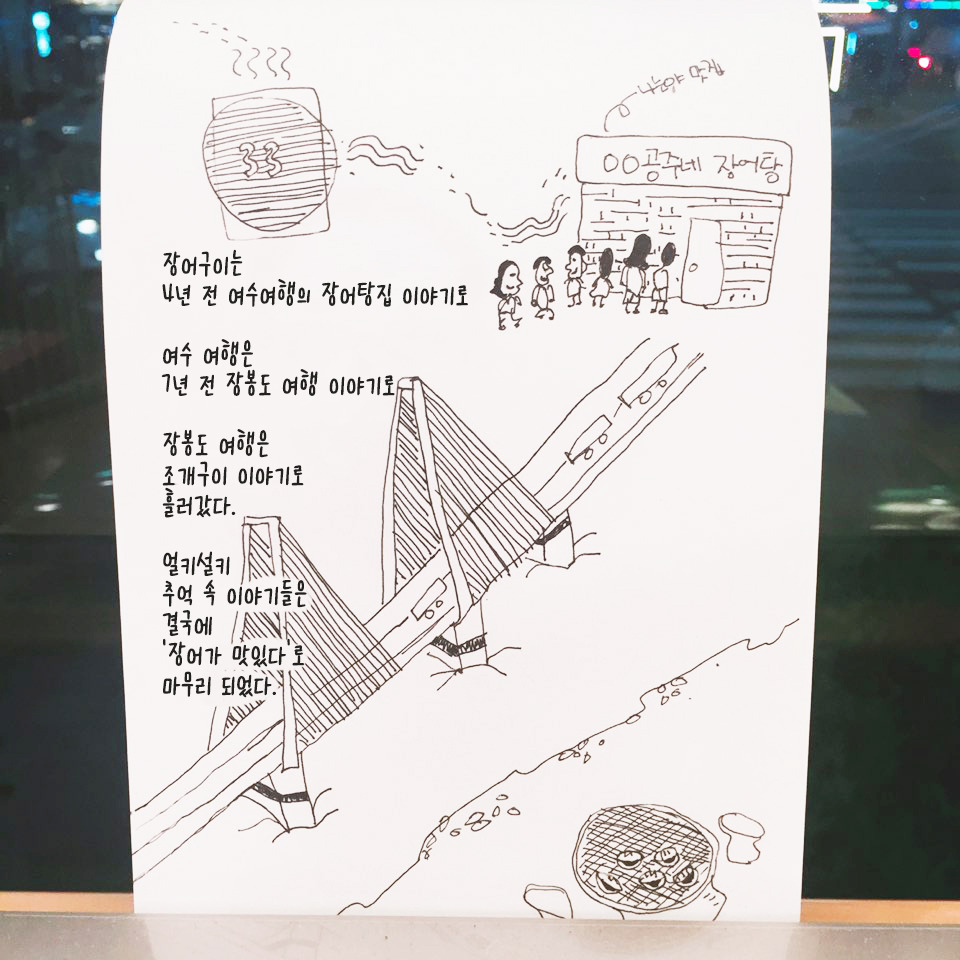 나는야 맛집
OO공주네 장어탕
장어구이는
4년 전 여수여행의 장어탕집 이야기로
여수 여행은
7년 전 장봉도 여행 이야기로
장봉도 여행은
조개구이 이야기로
흘러갔다.
얼키설키
추억 속 이야기들은
결국에
'장어가 맛있다'로
마무리 되었다.